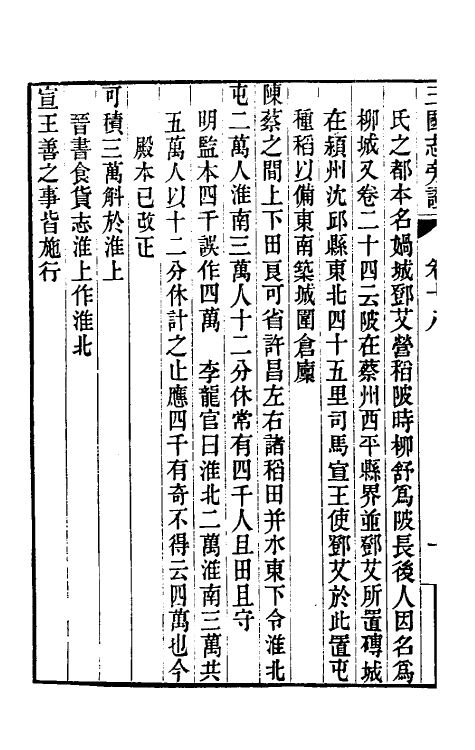 三國志旁證 卷十八 一
氏之都本名媧城鄧艾營稻陂時柳舒爲陂長後人因名爲
柳城又卷二十四云陂在蔡州西平縣界並鄧艾所置磚城
在潁州沈邱縣東北四十五里司馬宣王使鄧艾於此置屯
種稻以備東南築城圍倉廩
陳蔡之間上下田良可省許昌左右諸稻田并水東下令淮北
屯二萬人淮南三萬人十二分休常有四千人且田且守
明監本四千誤作四萬　李龍官曰淮北二萬淮南三萬共
五萬人以十二分休計之止應四千有奇不得云四萬也今
殿本已改正
可積三萬斛於淮上
晉書食貨志淮上作淮北
宣王善之事皆施行